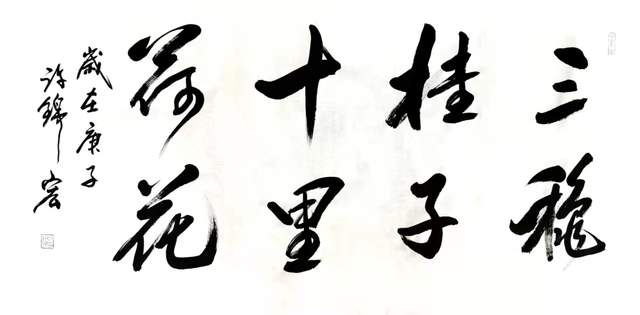 三穐
桂子
十里
荷花
歲在庚子
许錦宏